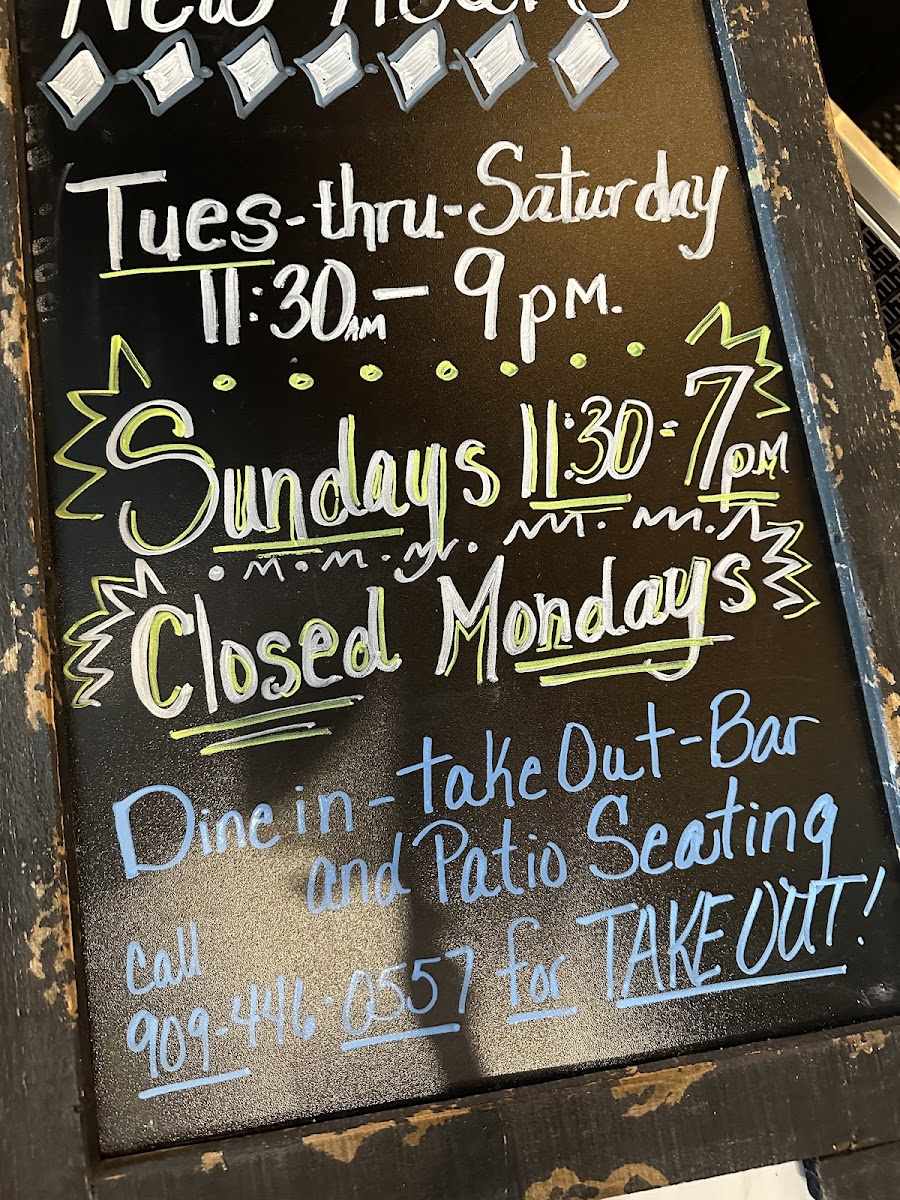 New Hours
Tues-thru-Saturday
11:30AM - 9pM.
Sundays 11:30-7pM
Closed Mondays
Dine in - take Out - Bar
and Patio Seating
Call
909-446-0557 for TAKE OUT!